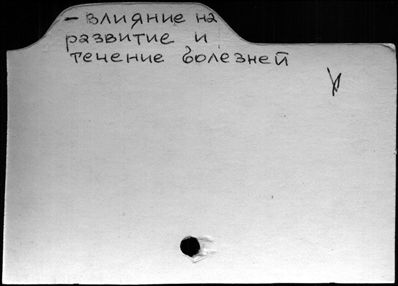 - влияние на
развитие и
течение болезней